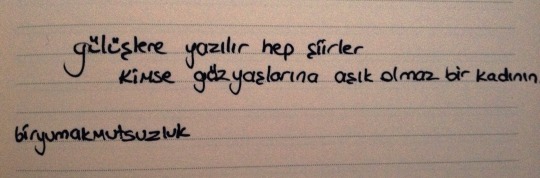 gülüşlere yazılır hep şiirler
kimse gözyaşlarına aşık olmaz bir kadının
biryumakmutsuzluk